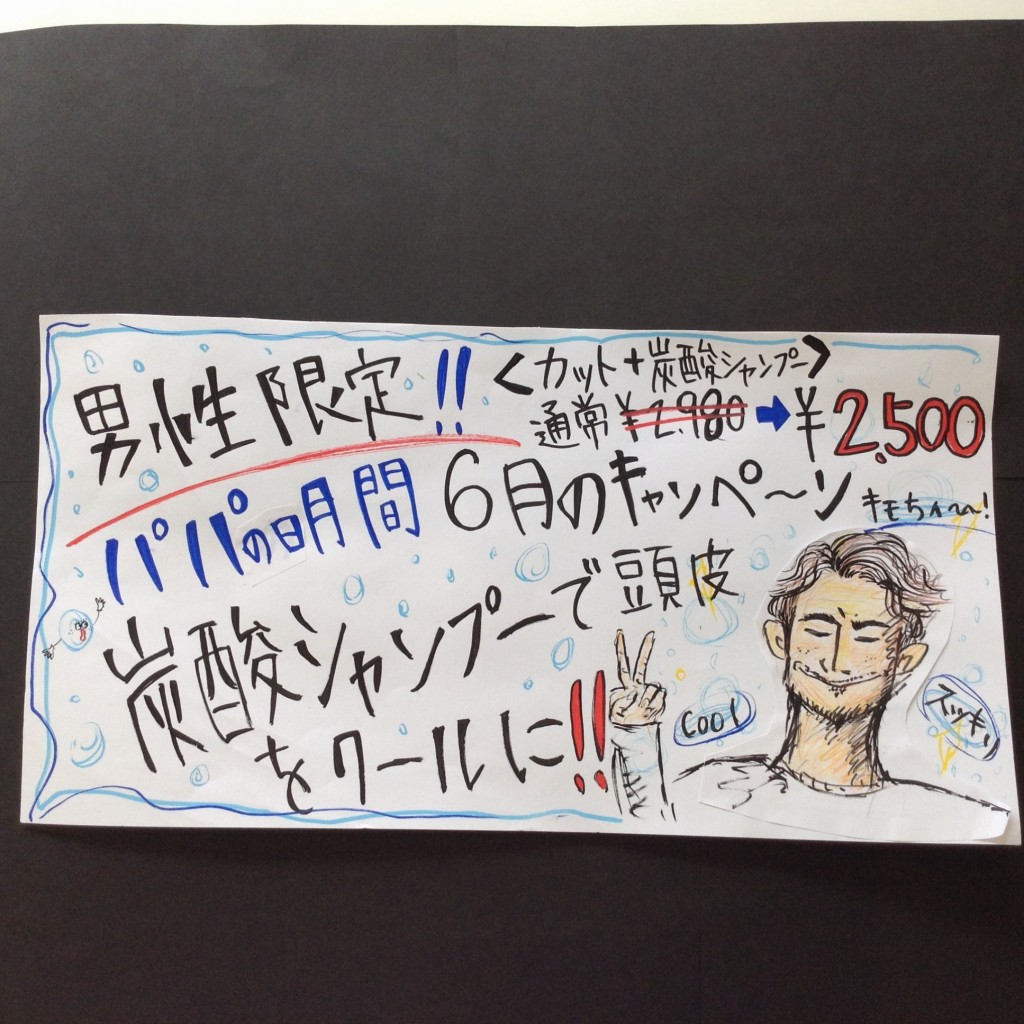 男性限定!!
<カット+炭酸シャンプー>
通常¥2.980➡¥2.500
パパの月間 6月のキャンペーン
キモちィ〜!
炭酸シャンプーで頭皮
をクールに!!
COOl
スッキリ